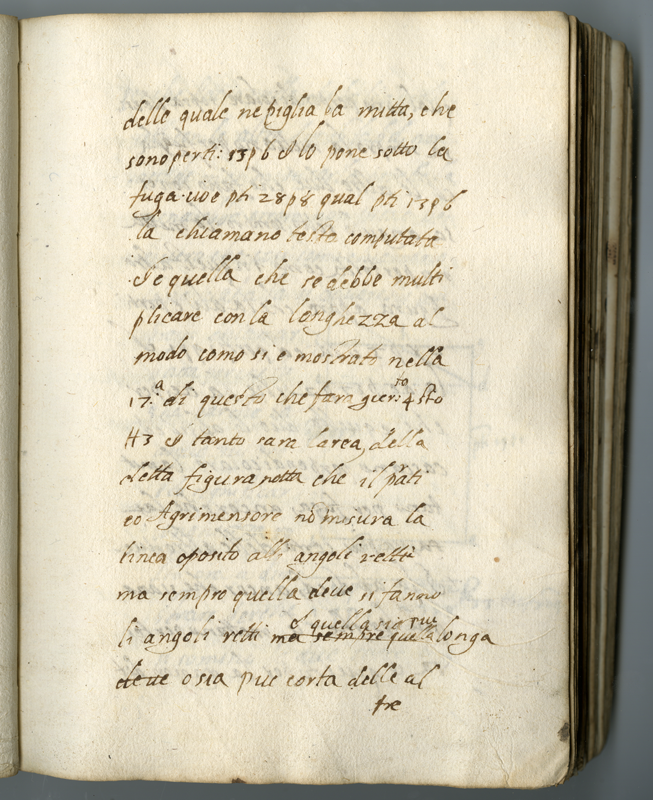 delle quale ne piglia la mitta, che
sono perti: 13p6 & lo pone sotto la
fuga cioe pti 28p8 qual pti 13p6
la chiamano testa computata
& e quella che se debbe multi
plicare con la longhezza al
modo como si e mostrato nella
17.a di questo che fara 4
& tanto sara larea, della
detta figura, notta che il prati
co Agrimensore nō misura la
linea oposito alli angoli retti
ma sempro quella doue si fanno
li angoli retti ma sempre quella & quella sia piu longa
deue o sia piu corta delle al
tre